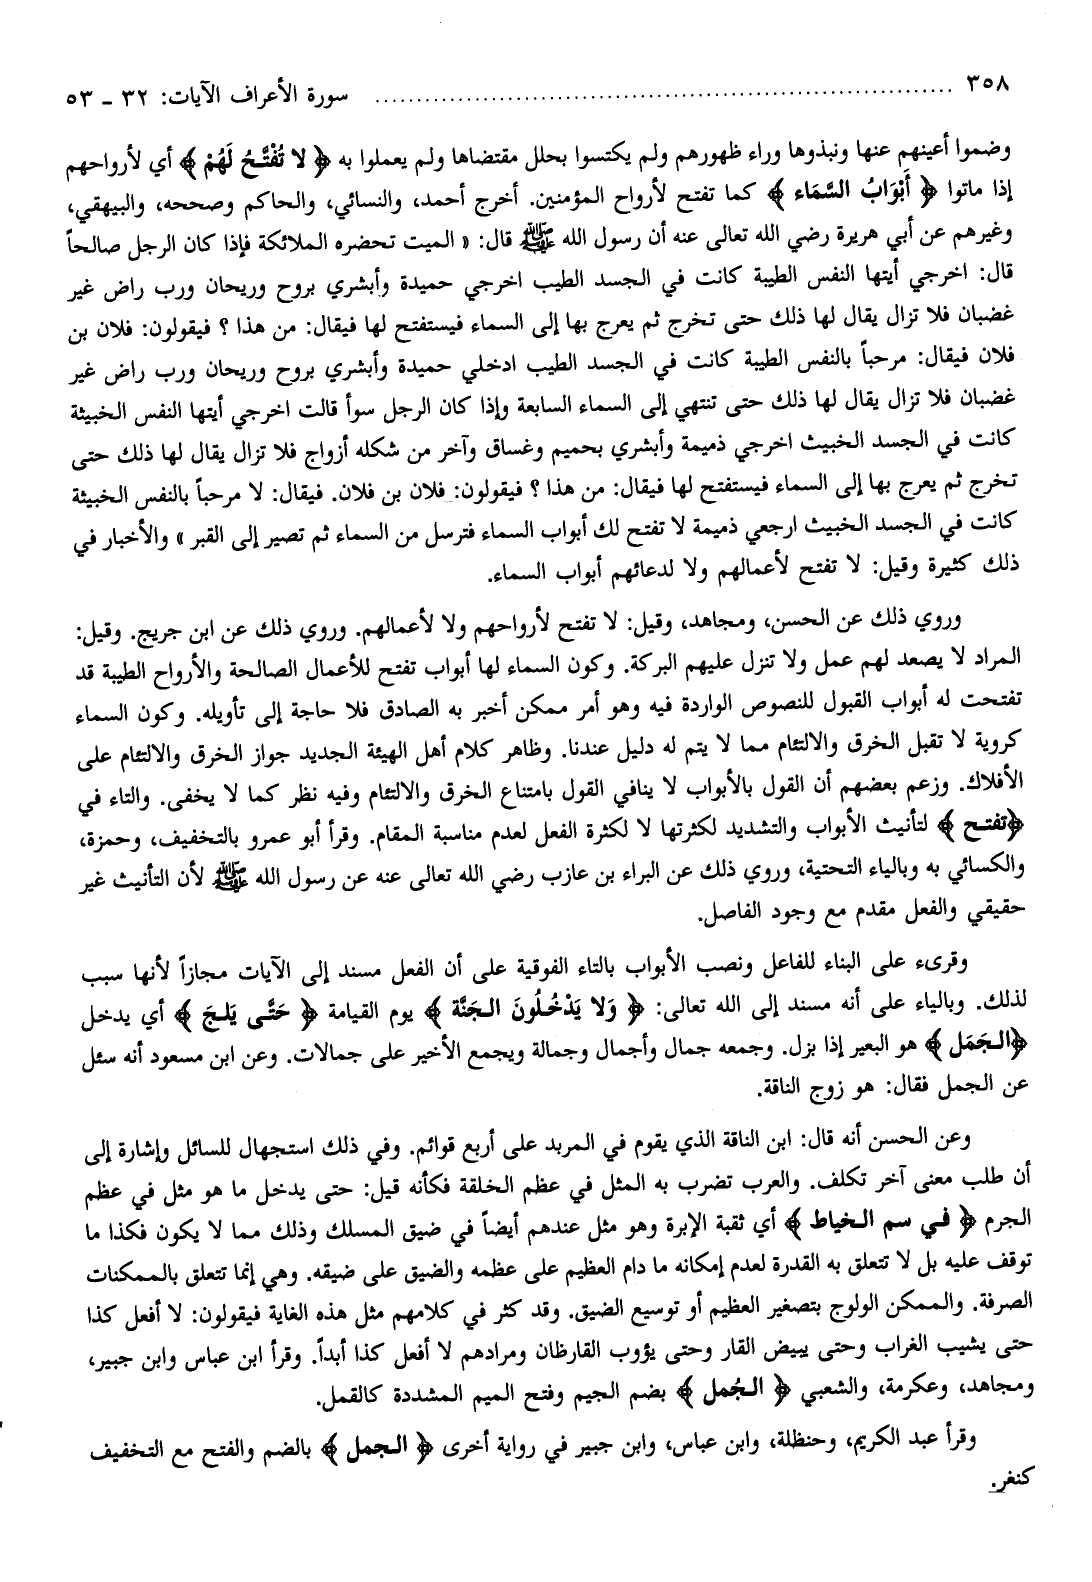 ٣٥٨ ........................ سورة الأعراف الآيات: ٣٢ ـ ٥٣
وضموا أعينهم عنها ونبذوها وراء ظهورهم ولم يكتسوا بحلل مقتضاها ولم يعملوا به ﴿ لا تُفْتَّحُ لَهُمْ ﴾ أي لأرواحهم
إذا ماتوا ﴿ أَبْوَابُ السَّمَاء ﴾ كما تفتح لأرواح المؤمنين. أخرج أحمد، والنسائي، والحاكم وصححه، والبيهقي،
وغيرهم عن أبي هريرة رضي الله تعالى عنه أن رسول الله ﷺ قال: « الميت تحضره الملائكة فإذا كان الرجل صالحاً
قال: اخرجي أيتها النفس الطيبة كانت في الجسد الطيب اخرجي حميدة وأبشري بروح وريحان ورب راض غير
غضبان فلا تزال يقال لها ذلك حتى تخرج ثم يعرج بها إلى السماء فيستفتح لها فيقال: من هذا ؟ فيقولون: فلان بن
فلان فيقال: مرحباً بالنفس الطيبة كانت في الجسد الطيب ادخلي حميدة وأبشري بروح وريحان ورب راض غير
غضبان فلا تزال يقال لها ذلك حتى تنتهي إلى السماء السابعة وإذا كان الرجل سوأ قالت اخرجي أيتها النفس الخبيثة
كانت في الجسد الخبيث اخرجي ذميمة وأبشري بحميم وغساق وآخر من شكله أزواج فلا تزال يقال لها ذلك حتى
تخرج ثم يعرج بها إلى السماء فيستفتح لها فيقال: من هذا ؟ فيقولون: فلان بن فلان. فيقال: لا مرحباً بالنفس الخبيثة
كانت في الجسد الخبيث ارجعي ذميمة لا تفتح لك أبواب السماء فترسل من السماء ثم تصير إلى القبر » والأخبار في
ذلك كثيرة وقيل: لا تفتح لأعمالهم ولا لدعائهم أبواب السماء.
وروي ذلك عن الحسن، ومجاهد، وقيل: لا تفتح لأرواحهم ولا لأعمالهم. وروي ذلك عن ابن جريج. وقيل:
المراد لا يصعد لهم عمل ولا تنزل عليهم البركة. وكون السماء لها أبواب تفتح للأعمال الصالحة والأرواح الطيبة قد
تفتحت له أبواب القبول للنصوص الواردة فيه وهو أمر ممكن أخبر به الصادق فلا حاجة إلى تأويله. وكون السماء
كروية لا تقبل الخرق والالتئام مما لا يتم له دليل عندنا. وظاهر كلام أهل الهيئة الجديد جواز الخرق والالتئام على
الأفلاك. وزعم بعضهم أن القول بالأبواب لا ينافي القول بامتناع الخرق والالتئام وفيه نظر كما لا يخفى. والتاء في
﴿تفتح ﴾ لتأنيث الأبواب والتشديد لكثرتها لا لكثرة الفعل لعدم مناسبة المقام. وقرأ أبو عمرو بالتخفيف، وحمزة،
والكسائي به وبالياء التحتية، وروي ذلك عن البراء بن عازب رضي الله تعالى عنه عن رسول الله ﷺ لأن التأنيث غير
حقيقي والفعل مقدم مع وجود الفاصل.
وقرىء على البناء للفاعل ونصب الأبواب بالتاء الفوقية على أن الفعل مسند إلى الآيات مجازاً لأنها سبب
لذلك. وبالياء على أنه مسند إلى الله تعالى: ﴿ وَلا يَدْخُلُونَ الجَنَّة ﴾ يوم القيامة ﴿ حَتَّى يَلجَ ﴾ أي يدخل
﴿الجَمَل ﴾ هو البعير إذا بزل. وجمعه جمال وأجمال وجمالة ويجمع الأخير على جمالات. وعن ابن مسعود أنه سئل
عن الجمل فقال: هو زوج الناقة.
وعن الحسن أنه قال: ابن الناقة الذي يقوم في المربد على أربع قوائم. وفي ذلك استجهال للسائل وإشارة إلى
أن طلب معنى آخر تكلف. والعرب تضرب به المثل في عظم الخلقة فكأنه قيل: حتى يدخل ما هو مثل في عظم
الجرم ﴿ في سم الخياط ﴾ أي ثقبة الإبرة وهو مثل عندهم أيضاً في ضيق المسلك وذلك مما لا يكون فكذا ما
توقف عليه بل لا تتعلق به القدرة لعدم إمكانه ما دام العظيم على عظمه والضيق على ضيقه. وهي إنما تتعلق بالممكنات
الصرفة. والممكن الولوج بتصغير العظيم أو توسيع الضيق. وقد كثر في كلامهم مثل هذه الغاية فيقولون: لا أفعل كذا
حتى يشيب الغراب وحتى يبيض القار وحتى يؤوب القارظان ومرادهم لا أفعل كذا أبداً. وقرأ ابن عباس وابن جبير،
ومجاهد، وعكرمة، والشعبي ﴿ الجُمل ﴾ بضم الجيم وفتح الميم المشددة كالقمل.
وقرأ عبد الكريم، وحنظلة، وابن عباس، وابن جبير في رواية أخرى ﴿ الجمل ﴾ بالضم والفتح مع التخفيف
كنغر.